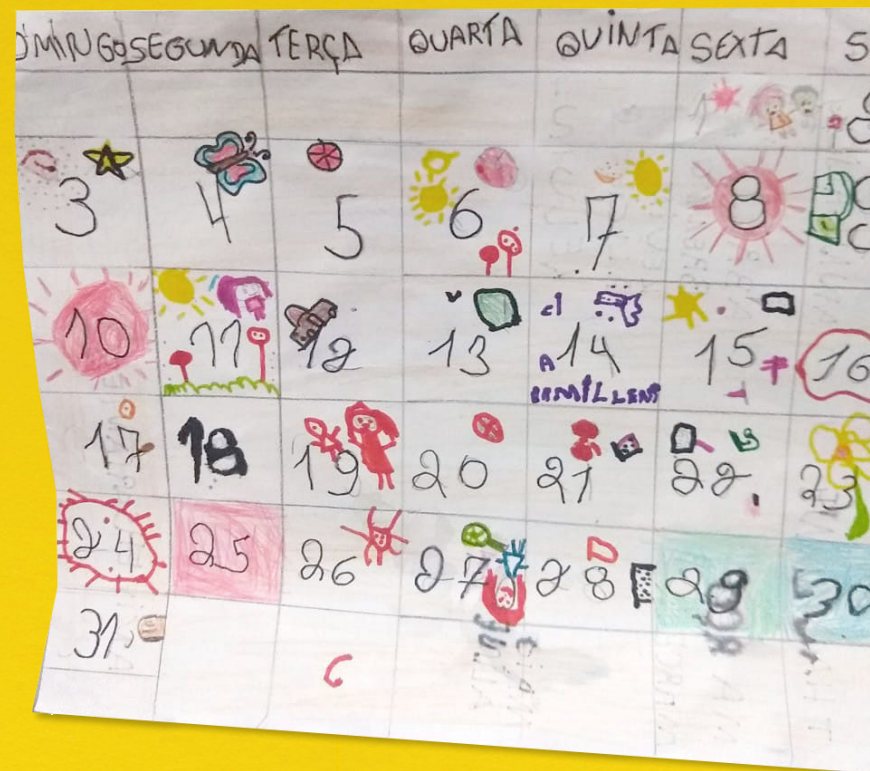 OMINGO SEGUNDA TERÇA QUARTA QUINTA SEXTA S
1
3 4 5 6 7 8
10 11 12 13 14 15 16
17 18 19 20 21 22 23
24 25 26 27 28 29 30
31